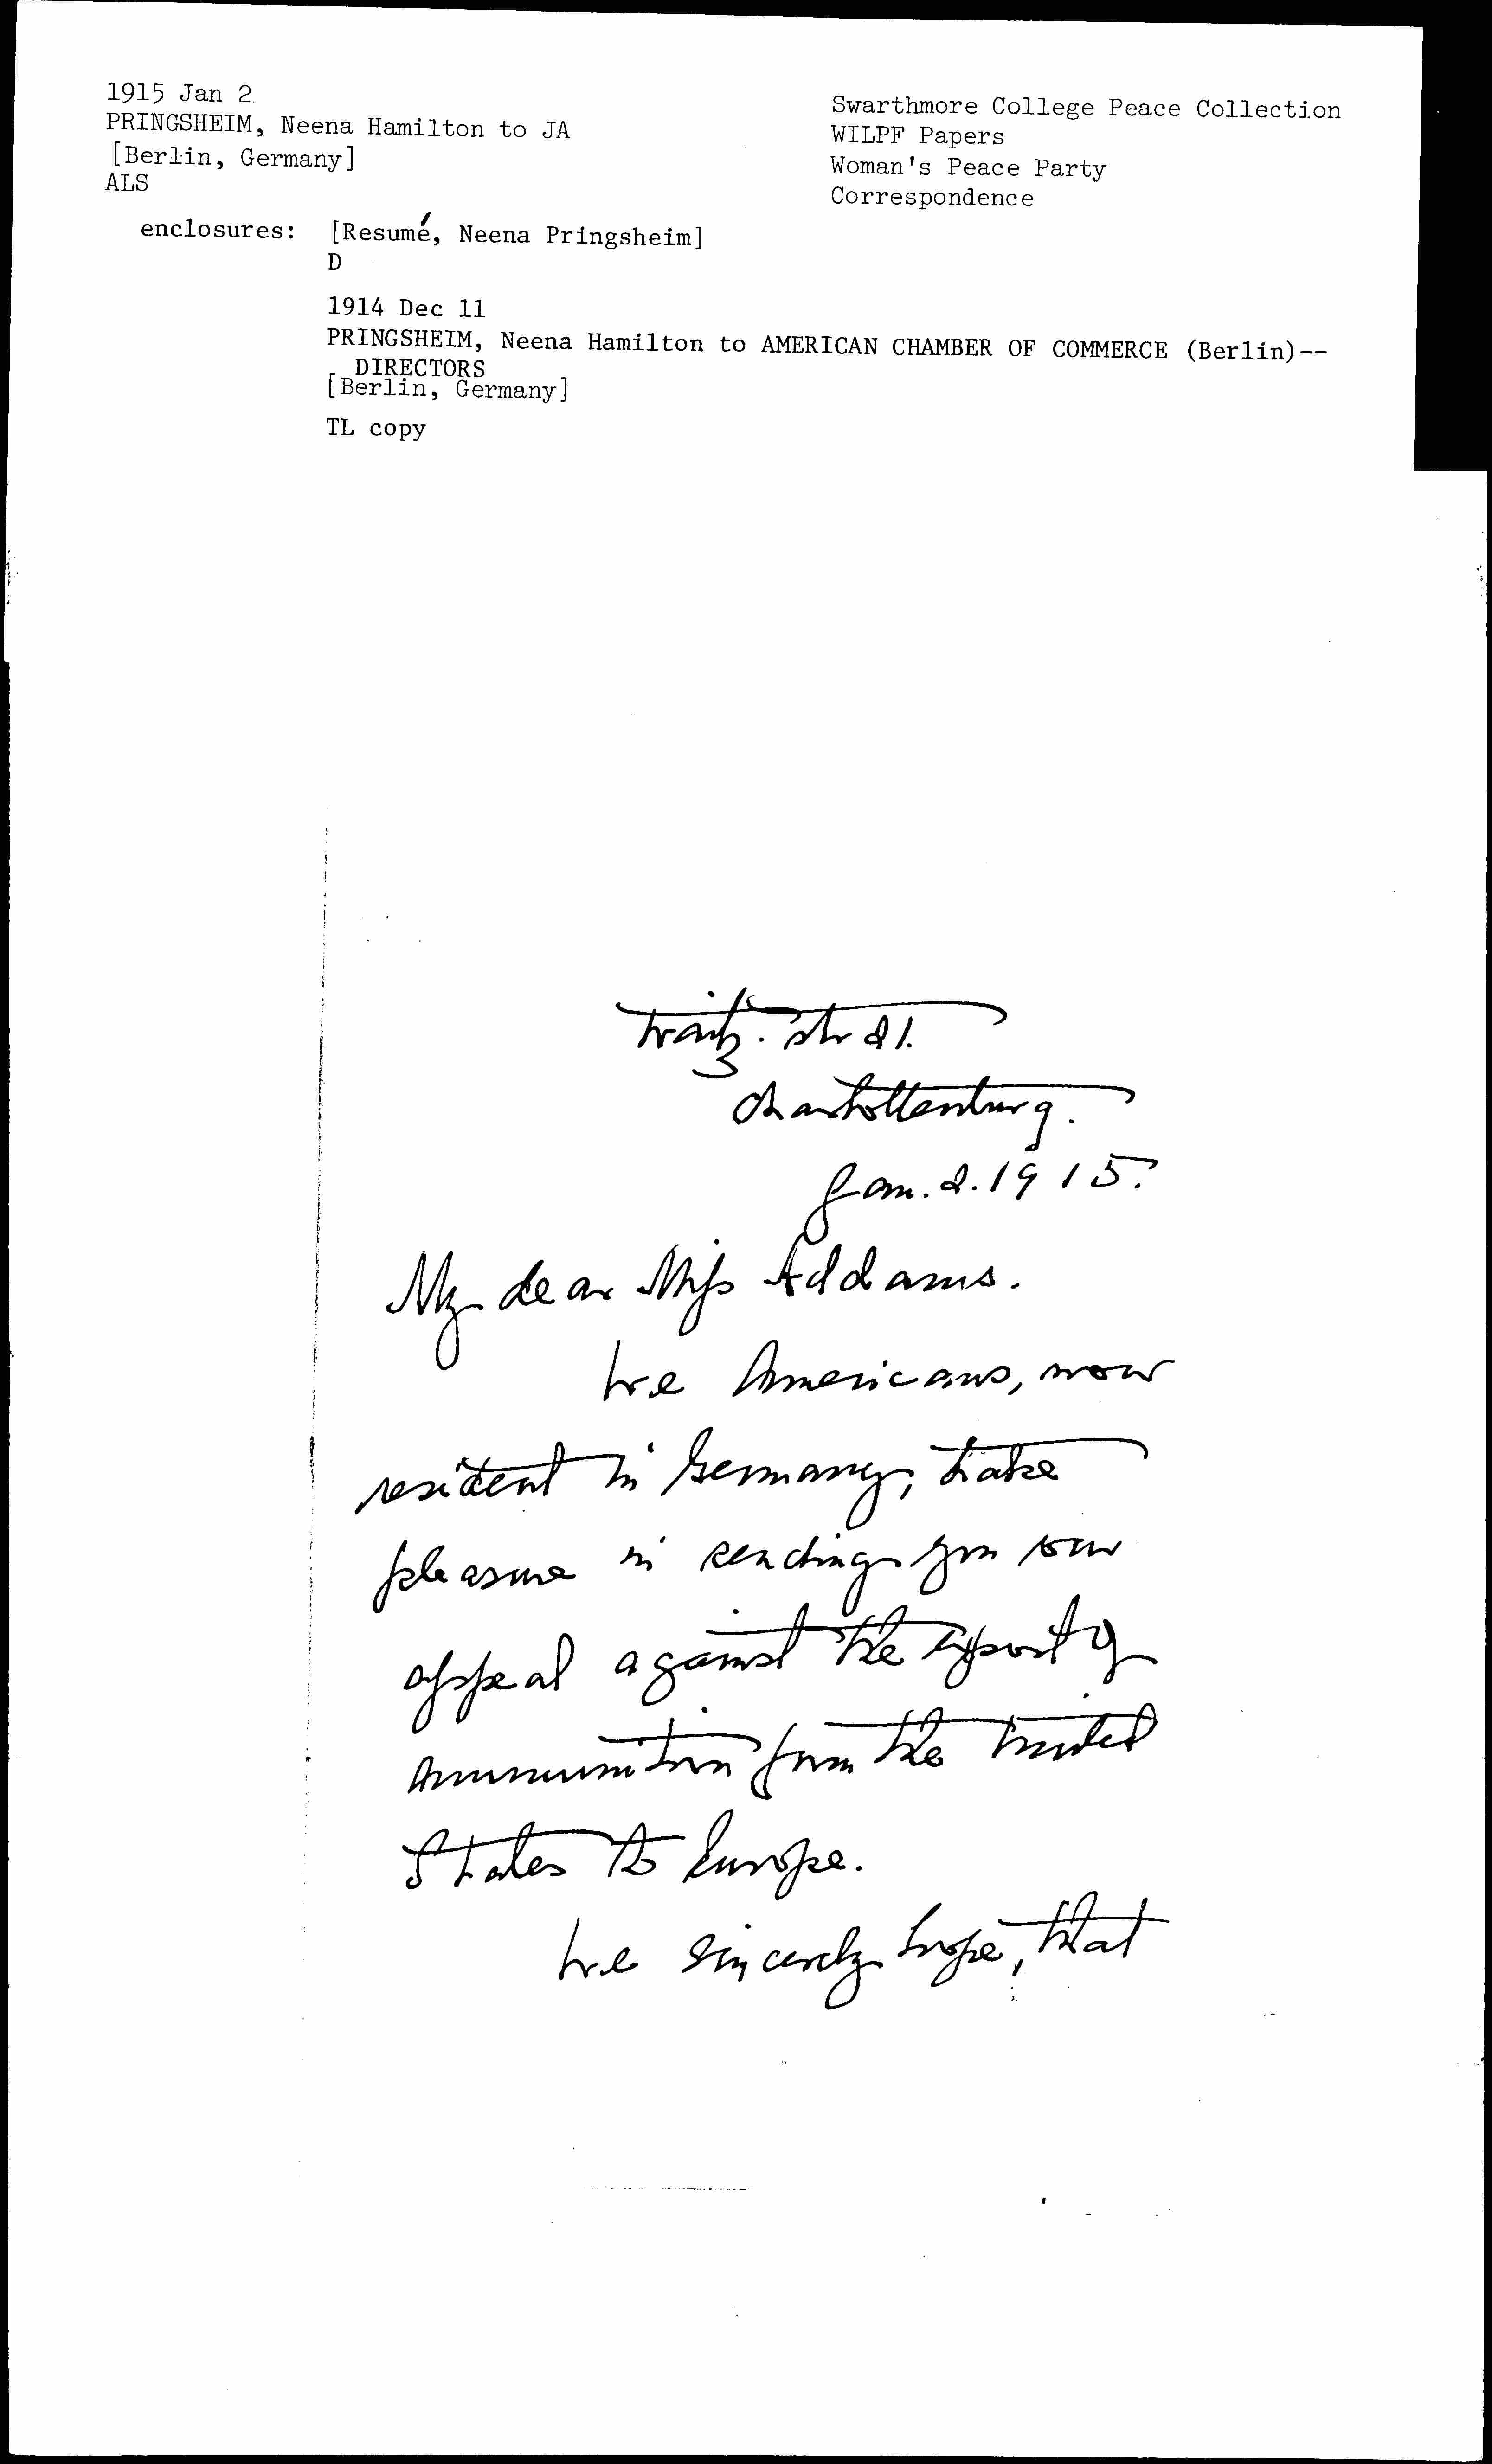 1915 Jan 2
PRINGSHEIM, Neena Hamilton to JA
[Berlin, Germany]
ALS
Swarthmore College Peace Collection
WILPF Papers
Woman's Peace Party
Correspondence
enclosures: [Resumé, Neena Pringsheim]
D
1914 Dec 11
PRINGSHEIM, Neena Hamilton to AMERICAN CHAMBER OF COMMERCE (Berlin)--
DIRECTORS
[Berlin, Germany]
TL copy
str 21.
Charlottenburg.
Jan. 2. 1915.
My dear Miss Addams.
We Americans, now
resident in Germany, take
pleasure in sending you our
appeal against the export of
Ammunition from the United
States to Europe.
We sincerely hope, that